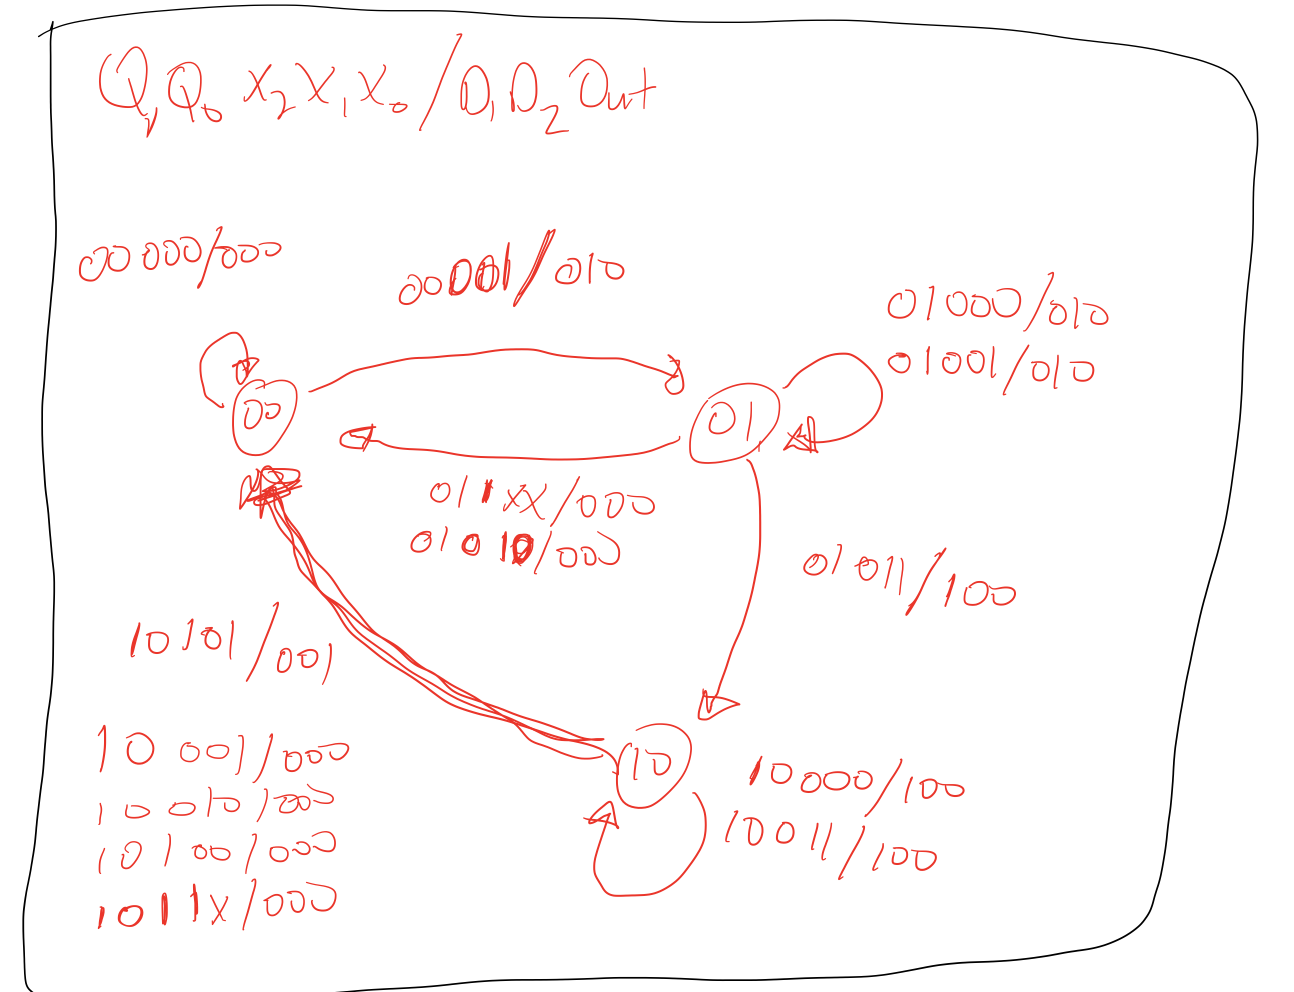 Q1 Q0 X2 X1 X0 / D1 D2 Out
00 000/000
00001/010
01000/010
01001/010
00
01
011XX/000
01010/000
01011/100
10101/001
10
10 001/000
10 010/000
10100/000
1011X/000
10000/100
10011/100